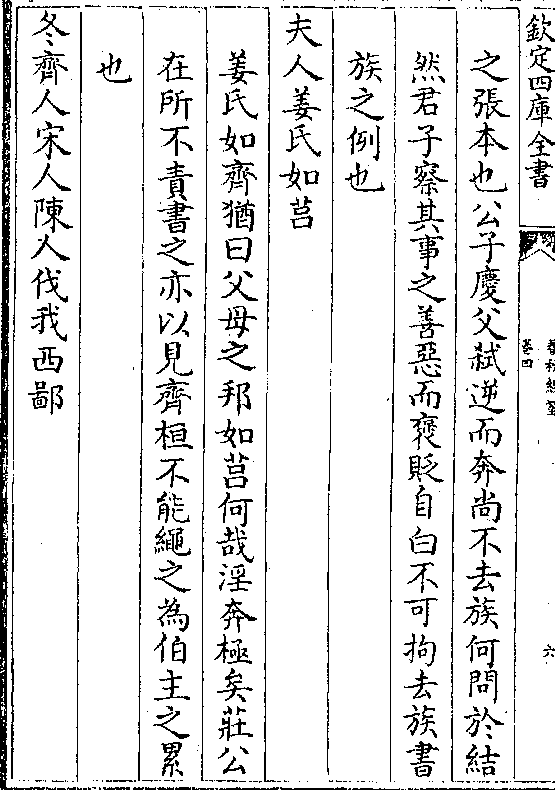 欽定四庫全書
卷四
六
之張本也公子慶父弑逆而奔尚不去族何問於結
然君子察其事之善惡而褒貶自白不可拘去族書
族之例也
夫人姜氏如莒
姜氏如齊猶曰父母之邦如莒何哉淫奔極矣莊公
在所不責書之亦以見齊桓不能繩之為伯主之累
也
冬齊人宋人陳人伐我西鄙